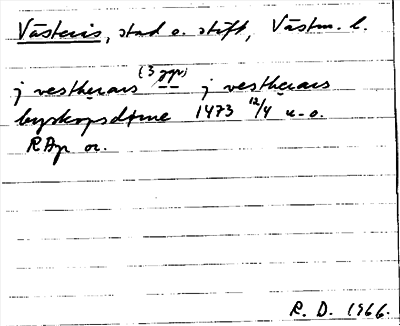 Västerås, stad o. stift, Västm. l.
j vestherars (3 ggr) -- j vestherars
byskopsdøme 1473 12/4 u. o.
RAp or.
R. D. 1966.